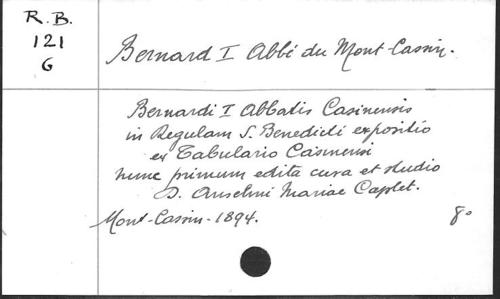 R.B.
121
G
Bernard I Abbé du Mont-Cassin.
Bernardi I Abbatis Casinensis
in Regulam S. Benedicti expositio
ex Tabulario Casinensi
nunc primum edita cura et studio
D. Anselmi Mariae Caplet.
Mont-Cassin-1894. 8°